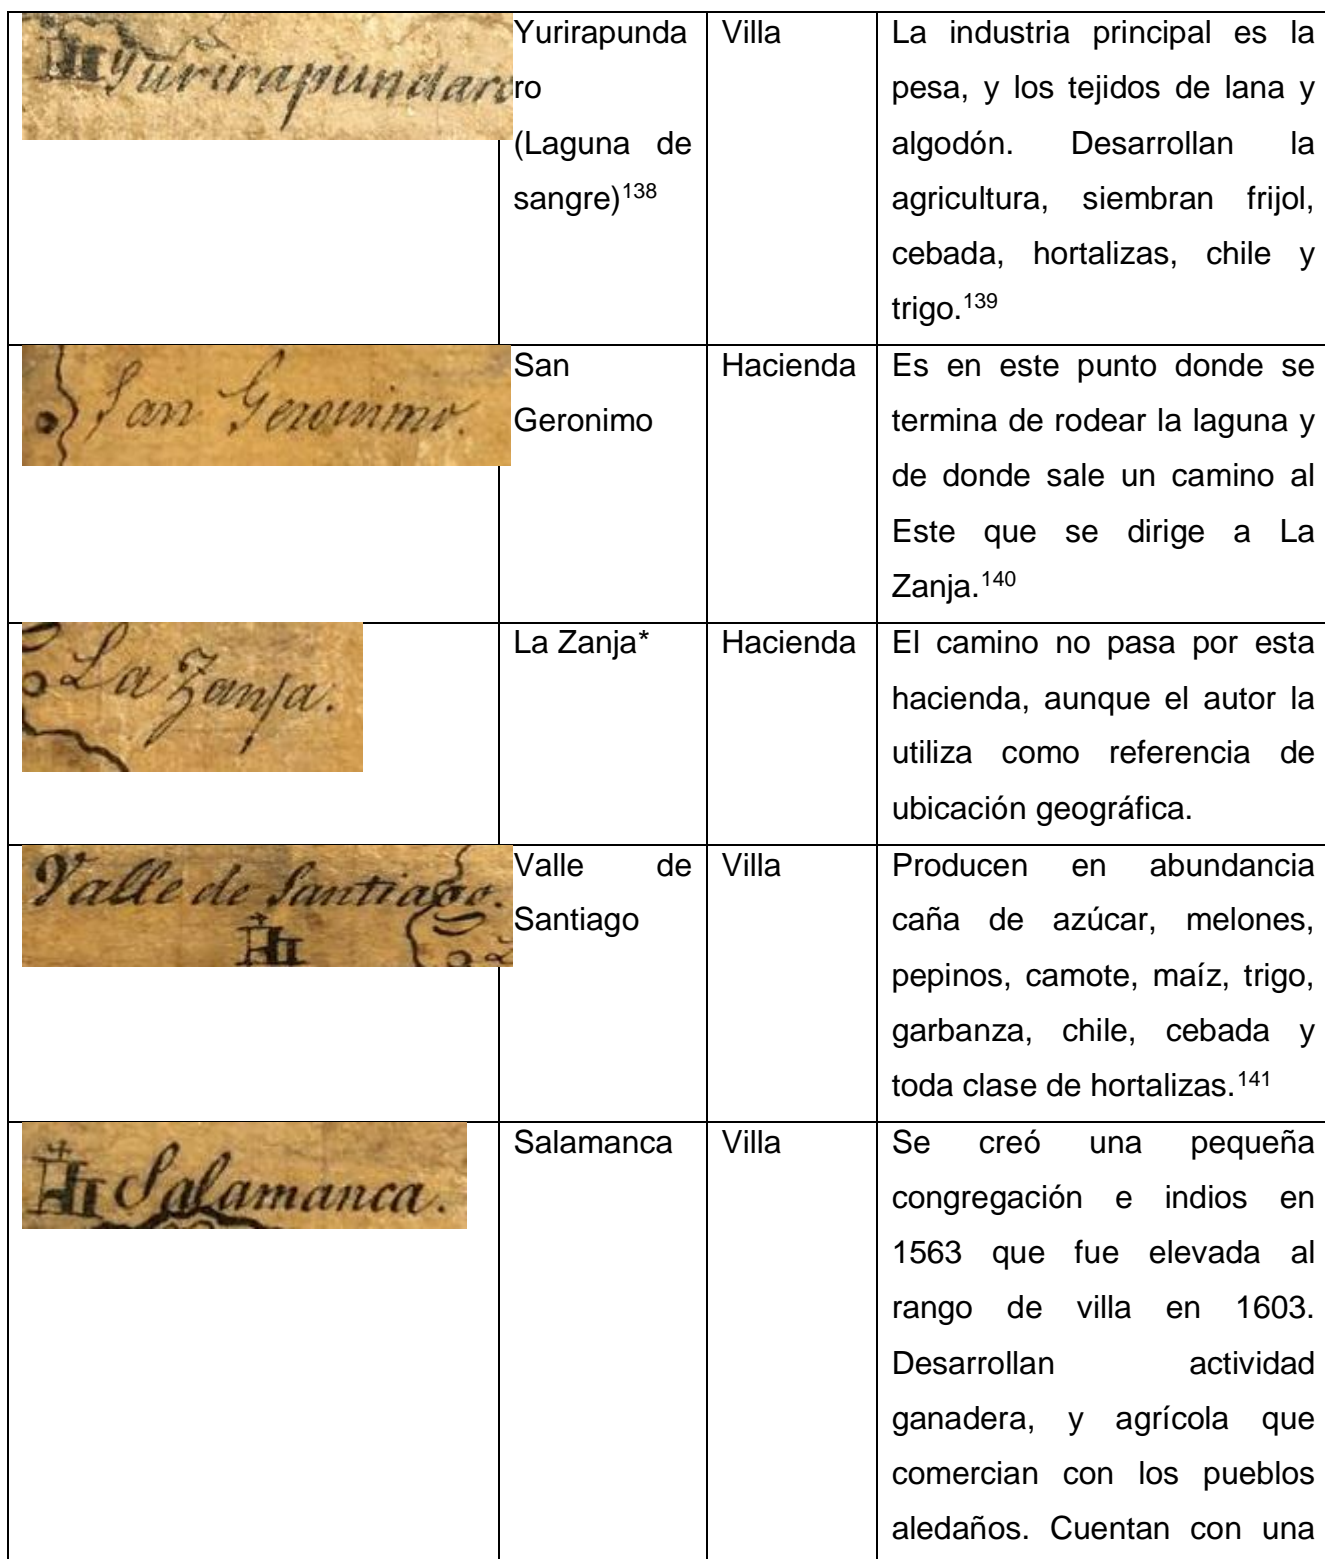 Yurirapundaro
Yurirapunda
ro
(Laguna de
sangre)138
Villa
La industria principal es la
pesa, y los tejidos de lana y
algodón. Desarrollan la
agricultura, siembran frijol,
cebada, hortalizas, chile y
trigo.139
San Geronimo.
San
Geronimo
Hacienda
Es en este punto donde se
termina de rodear la laguna y
de donde sale un camino al
Este que se dirige a La
Zanja.140
La Zanja.
La Zanja*
Hacienda
El camino no pasa por esta
hacienda, aunque el autor la
utiliza como referencia de
ubicación geográfica.
Valle de Santiago.
Valle de
Santiago
Villa
Producen en abundancia
caña de azúcar, melones,
pepinos, camote, maíz, trigo,
garbanza, chile, cebada y
toda clase de hortalizas.141
Salamanca.
Salamanca
Villa
Se creó una pequeña
congregación e indios en
1563 que fue elevada al
rango de villa en 1603.
Desarrollan actividad
ganadera, y agrícola que
comercian con los pueblos
aledaños. Cuentan con una